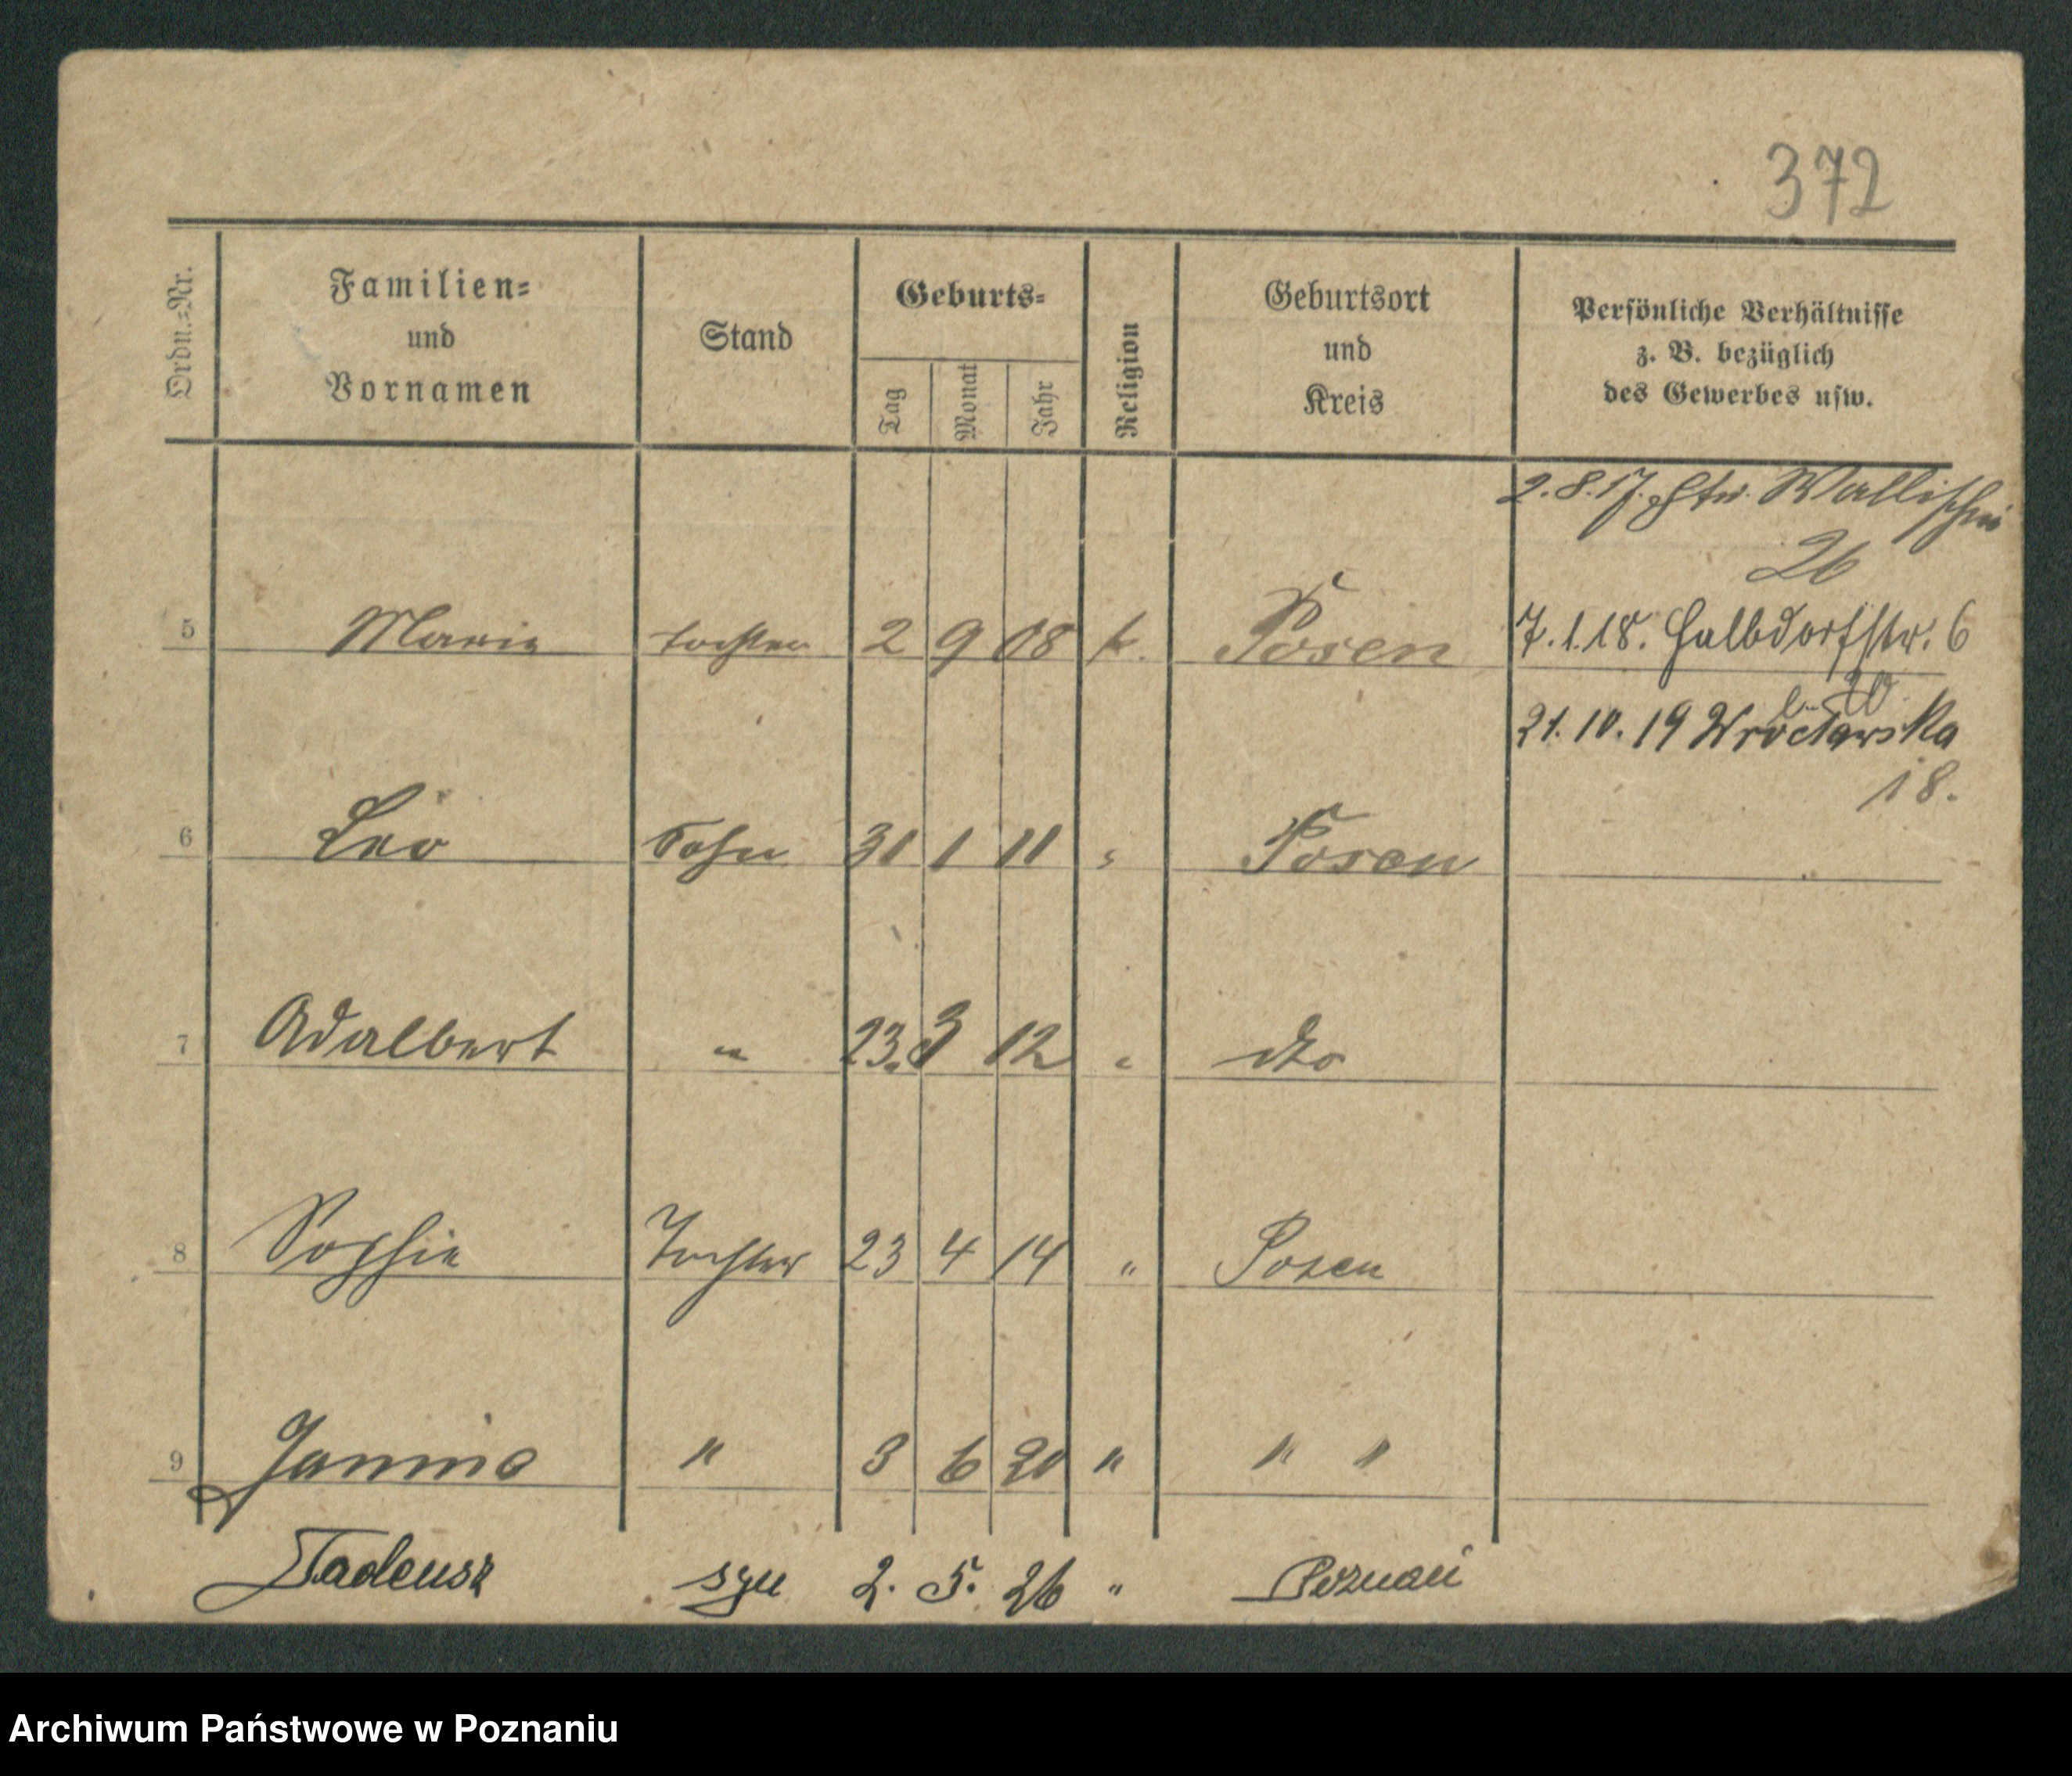 372
Ordn.-Nr.
Familien-
und
Vornamen
Stand
Geburts-
Tag
Monat
Jahr
Religion
Geburtsort
und
Kreis
Persönliche Verhältnisse
z. B. bezüglich
des Gewerbes usw.
2.8.17. Wallischei
26
5 Marie Tochter 2 9 08 k. Posen 7.1.18. Halbdorfstr. 6
21.10.19 Wrocławska
18.
6 Leo Sohn 31 1 11 " Posen
7 Adalbert " 23. 3 12 " dto
8 Sophie Tochter 23 4 14 " Posen
9 Janina " 3 6 20 " " "
Tadeusz syn 2. 5. 26 " Poznań
Archiwum Państwowe w Poznaniu